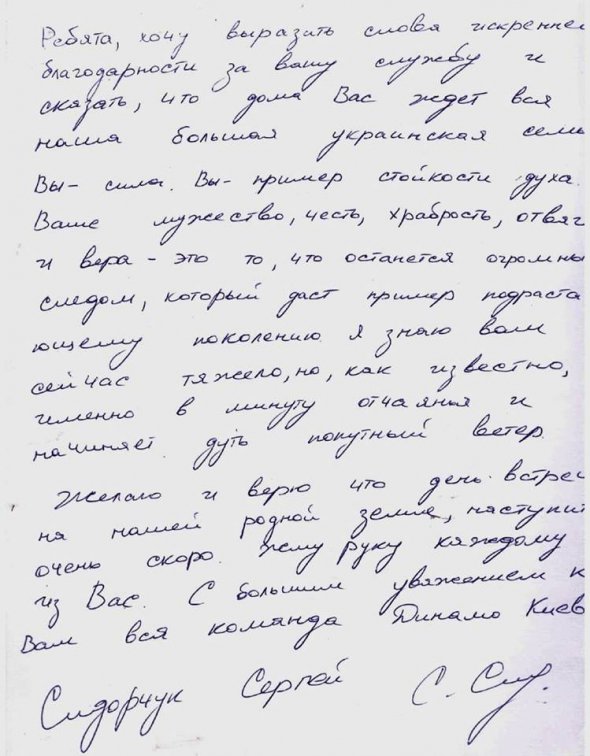 Ребята, хочу выразить слова искренне
благодарности за вашу службу и
сказать, что дома Вас ждет вся
наша большая украинская семь
Вы- сила. Вы- пример стойкости духа.
Ваше мужество, честь, храбрость, отваг
и вера - это то, что останется огромны
следом, который даст пример подраста
ющему поколению. Я знаю вам
сейчас тяжело, но, как известно,
именно в минуту отчаянья и
начинает дуть попутный ветер.
Желаю и верю что день встреч
на нашей родной земле, наступит
очень скоро. Жму руку каждому
из Вас. С большим уважением к
Вам вся команда Динамо Киев
Сидорчук Сергей